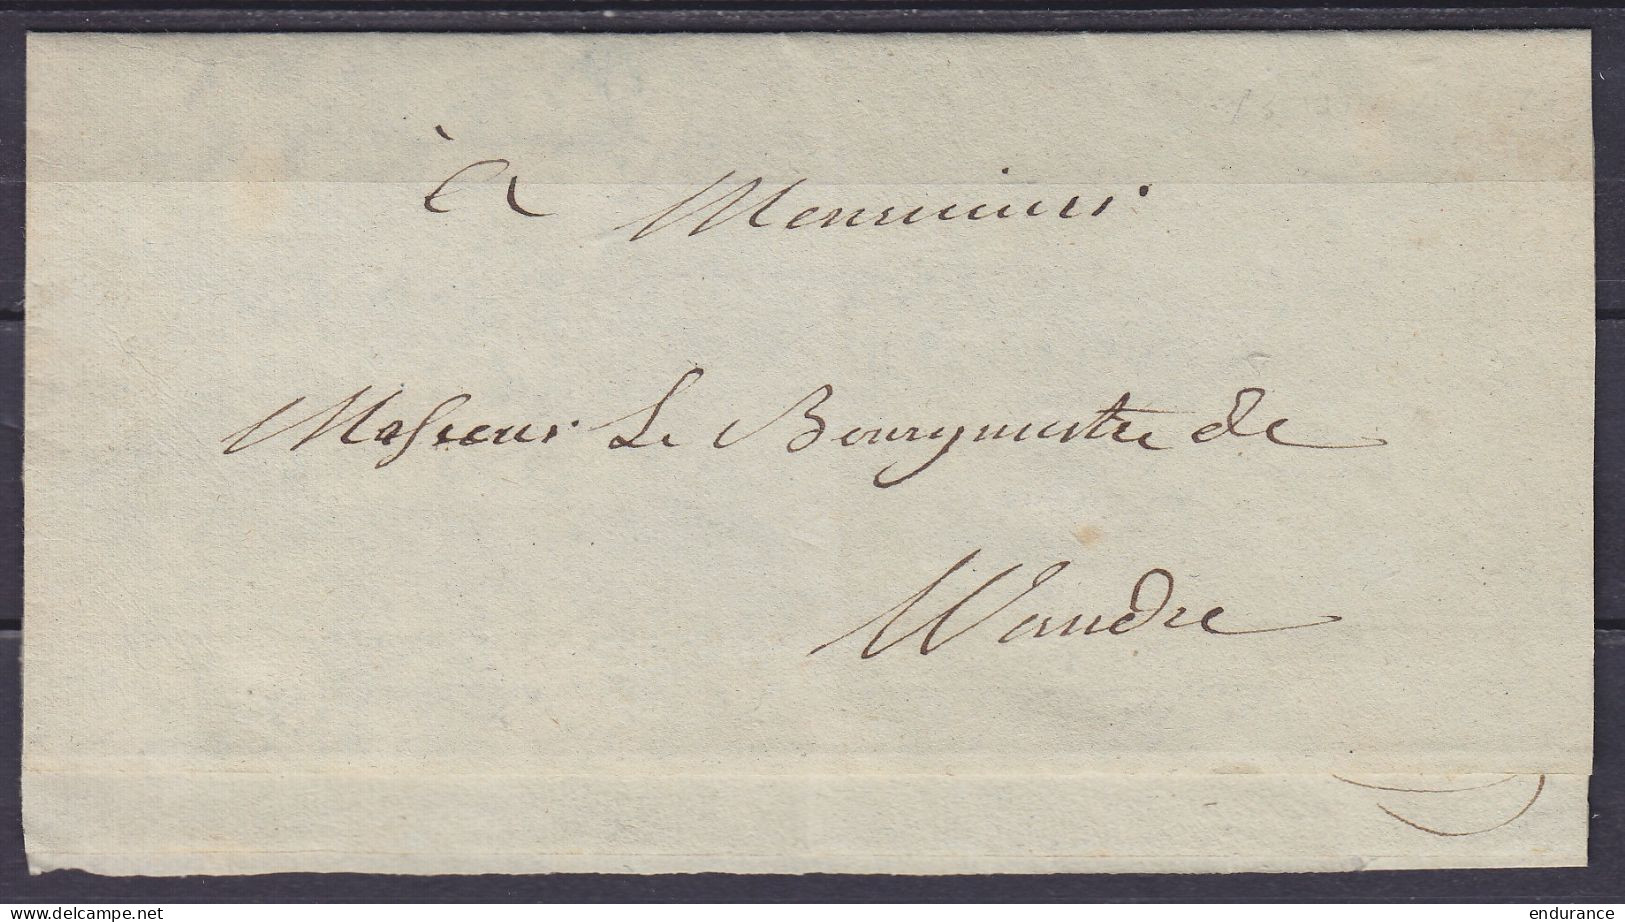 à Monsieur
Monsieur Le Bourgmestre de
Wandre
delcampe.net
endurance